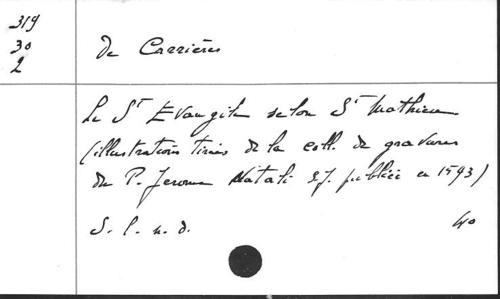 319
30
2
de Carrières
Le St Evangile selon St Mathieu
(illustrations tirées de la coll. de gravures
du P. Jerome Natali S.J. publiée en 1593)
S. l. n. d.
40